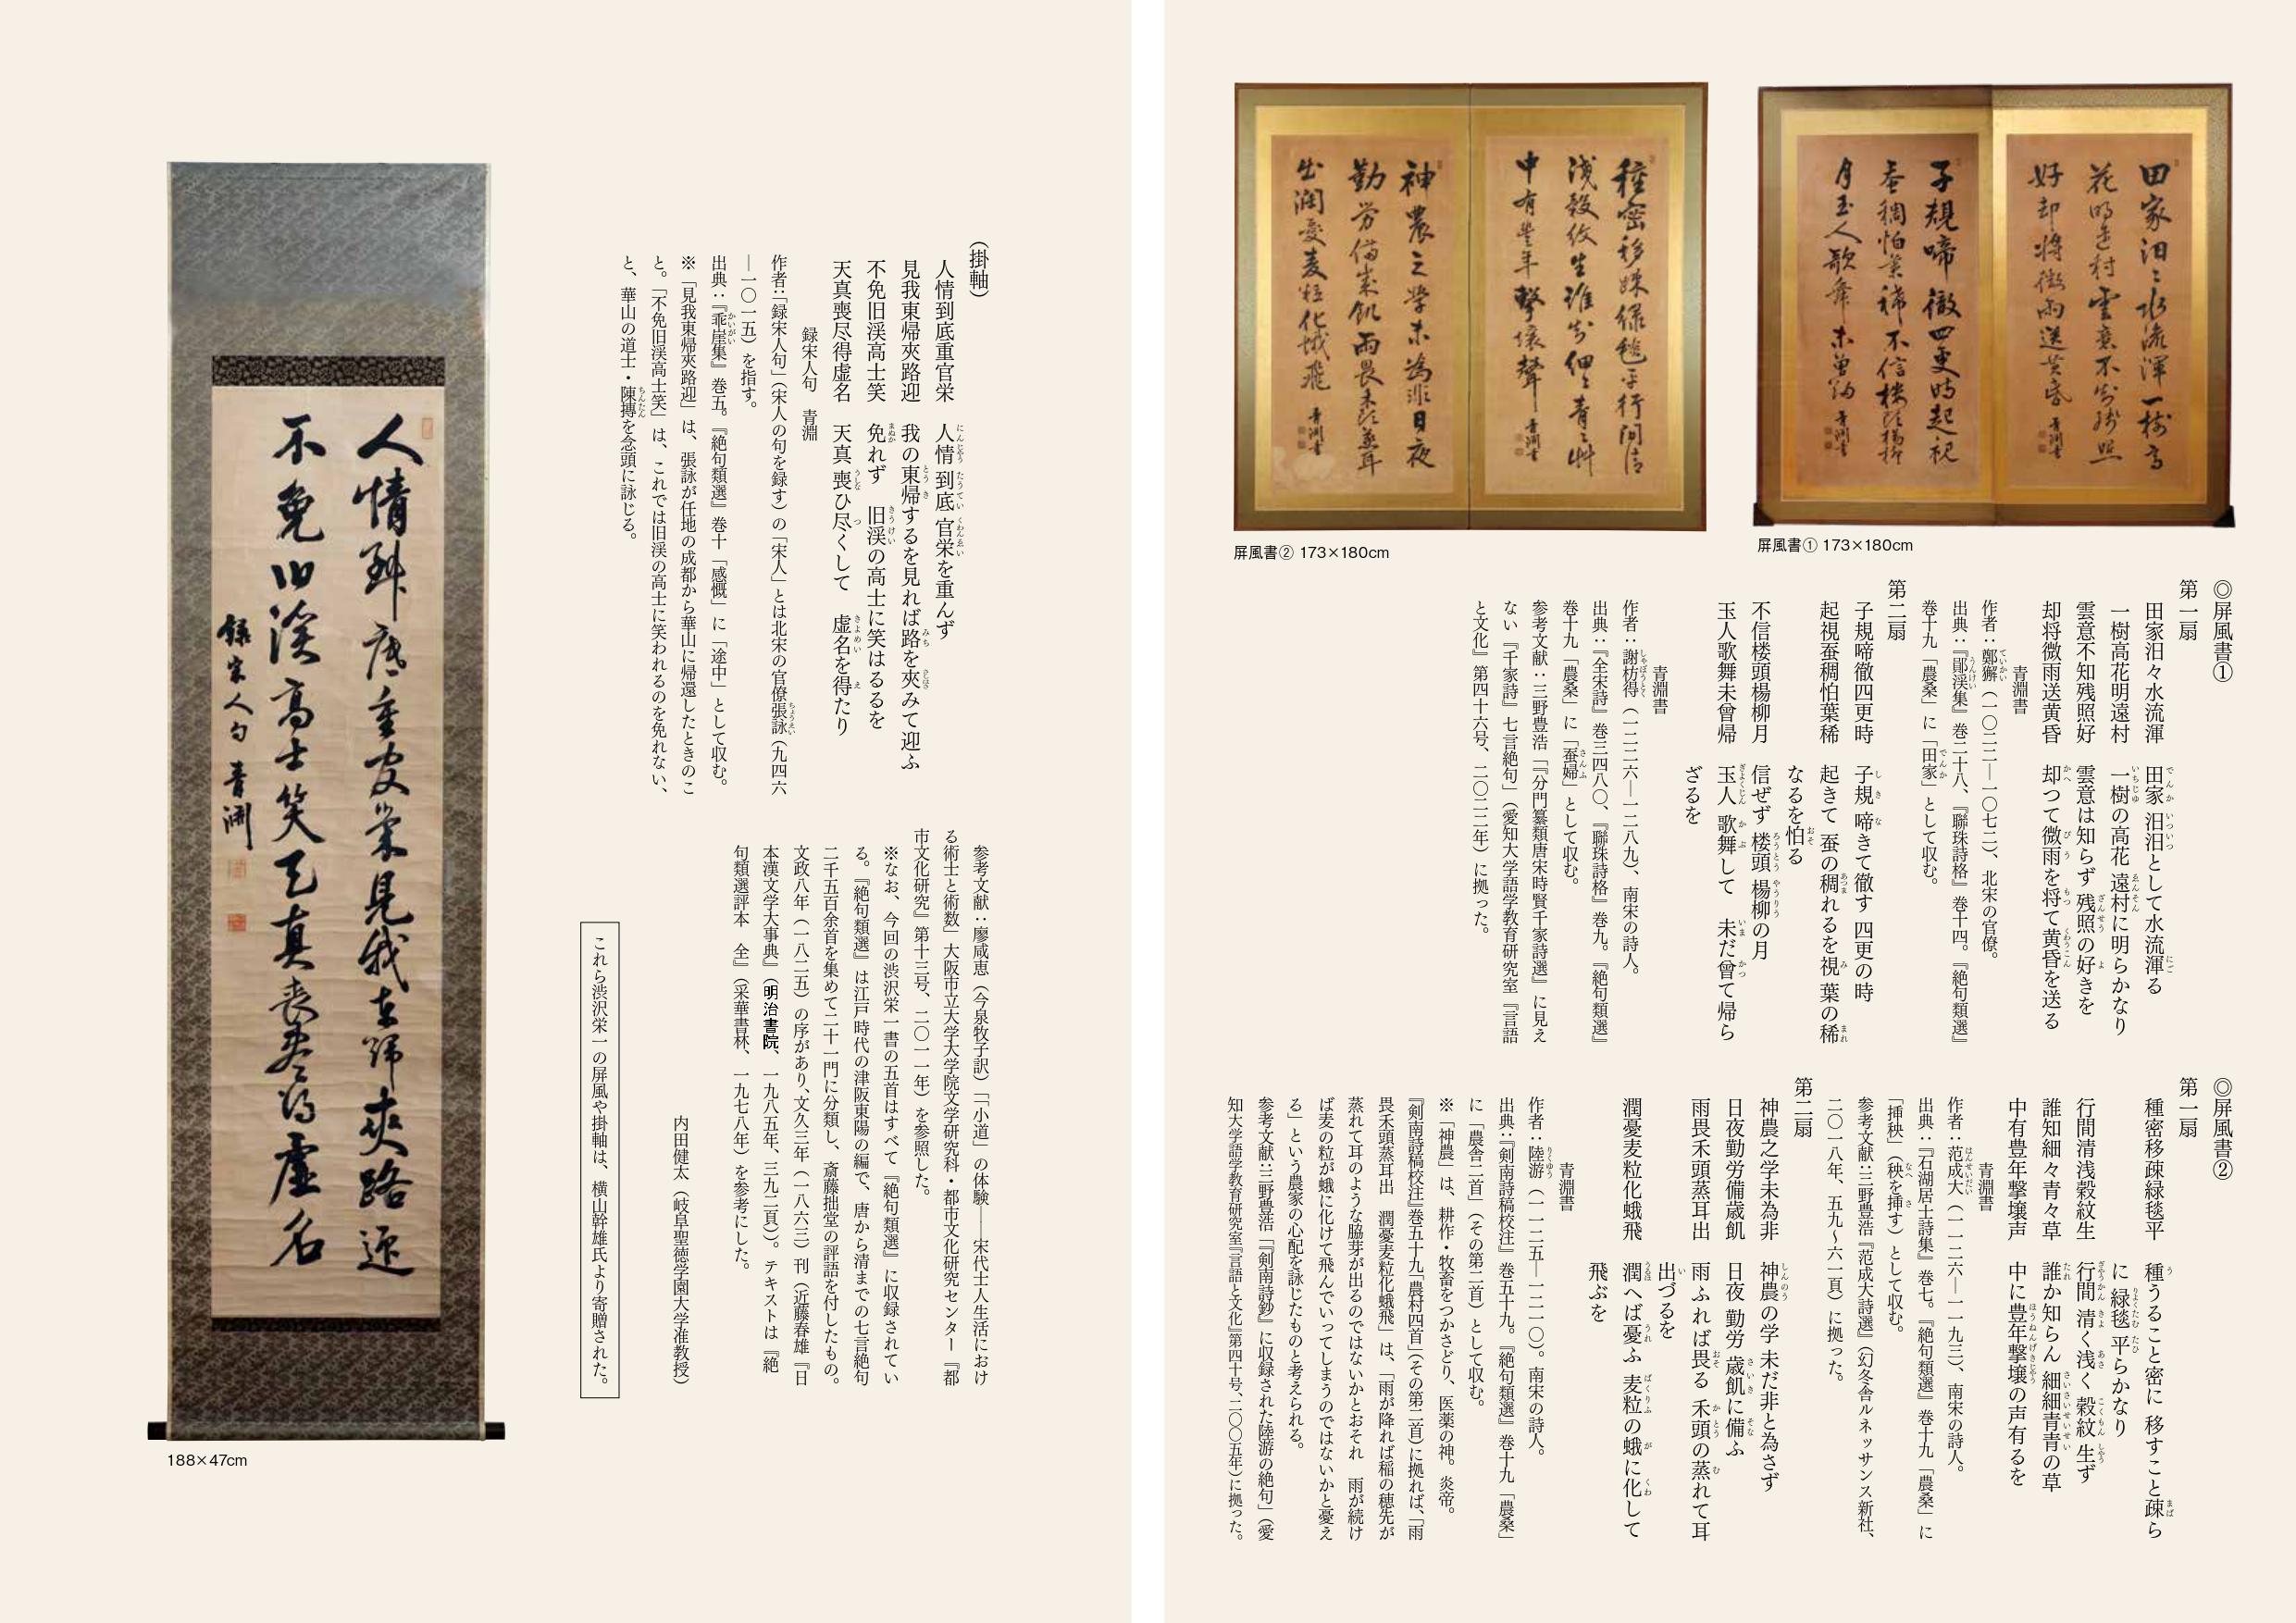 屏風書① 173×180cm
屏風書② 173×180cm
◎屏風書①
第一扇
田家汨々水流渾　田家 汨汨として水流渾る
一樹高花明遠村　一樹の高花 遠村に明らかなり
雲意不知残照好　雲意は知らず 残照の好きを
却将微雨送黄昏　却つて微雨を将て黄昏を送る
青淵書
作者：鄭獬（一〇二二―一〇七二）、北宋の官僚。
出典：『鄖渓集』巻二十八、『聯珠詩格』巻十四。『絶句類選』
巻十九「農桑」に「田家」として収む。
第二扇
子規啼徹四更時　子規 啼きて徹す 四更の時
起視蚕稠怕葉稀　起きて 蚕の稠れるを視 葉の稀
なるを怕る
不信楼頭楊柳月　信ぜず 楼頭 楊柳の月
玉人歌舞未曾帰　玉人 歌舞して　未だ曾て帰ら
ざるを
青淵書
作者：謝枋得（一二二六―一二八九）、南宋の詩人。
出典：『全宋詩』巻三四八〇、『聯珠詩格』巻九。『絶句類選』
巻十九「農桑」に「蚕婦」として収む。
参考文献：三野豊浩「『分門纂類唐宋時賢千家詩選』に見え
ない『千家詩』七言絶句」（愛知大学語学教育研究室『言語
と文化』第四十六号、二〇二二年）に拠った。
◎屏風書②
第一扇
種密移疎緑毯平　種うること密に 移すこと疎ら
に 緑毯 平らかなり
行間清浅縠紋生　行間 清く浅く 縠紋 生ず
誰知細々青々草　誰か知らん 細細青青の草
中有豊年撃壌声　中に豊年撃壌の声有るを
青淵書
作者：范成大（一一二六―一一九三）、南宋の詩人。
出典：『石湖居士詩集』巻七。『絶句類選』巻十九「農桑」に
「挿秧」（秧を挿す）として収む。
参考文献：三野豊浩『范成大詩選』（幻冬舎ルネッサンス新社、
二〇一八年、五九〜六一頁）に拠った。
第二扇
神農之学未為非　神農の学 未だ非と為さず
日夜勤労備歳飢　日夜 勤労 歳飢に備ふ
雨畏禾頭蒸耳出　雨ふれば畏る 禾頭の蒸れて耳
出づるを
潤憂麦粒化蛾飛　潤へば憂ふ 麦粒の蛾に化して
飛ぶを
青淵書
作者：陸游（一一二五―一二一〇）。南宋の詩人。
出典：『剣南詩稿校注』巻五十九。『絶句類選』巻十九「農桑」
に「農舎二首」（その第二首）として収む。
※「神農」は、耕作・牧畜をつかさどり、医薬の神。炎帝。
『剣南詩稿校注』巻五十九「農村四首」（その第二首）に拠れば、「雨
畏禾頭蒸耳出　潤憂麦粒化蛾飛」は、「雨が降れば稲の穂先が
蒸れて耳のような脇芽が出るのではないかとおそれ　雨が続け
ば麦の粒が蛾に化けて飛んでいってしまうのではないかと憂え
る」という農家の心配を詠じたものと考えられる。
参考文献：三野豊浩「『剣南詩鈔』に収録された陸游の絶句」（愛
知大学語学教育研究室『言語と文化』第四十号、二〇〇五年）に拠った。
（掛軸）
人情到底重官栄　人情 到底 官栄を重んず
見我東帰夾路迎　我の東帰するを見れば 路を夾みて迎ふ
不免旧渓高士笑　免れず　旧渓の高士に笑はるるを
天真喪尽得虚名　天真 喪ひ尽くして　虚名を得たり
録宋人句　青淵
作者：「録宋人句」（宋人の句を録す）の「宋人」とは北宋の官僚張詠（九四六
―一〇一五）を指す。
出典：『乖崖集』巻五。『絶句類選』巻十「感慨」に「途中」として収む。
※「見我東帰夾路迎」は、張詠が任地の成都から華山に帰還したときのこ
と。「不免旧渓高士笑」は、これでは旧渓の高士に笑われるのを免れない、
と、華山の道士・陳摶を念頭に詠じる。
参考文献：廖咸恵（今泉牧子訳）「「小道」の体験――宋代士人生活におけ
る術士と術数」大阪市立大学大学院文学研究科・都市文化研究センター『都
市文化研究』第十三号、二〇一一年）を参照した。
※なお、今回の渋沢栄一書の五首はすべて『絶句類選』に収録されてい
る。『絶句類選』は江戸時代の津阪東陽の編で、唐から清までの七言絶句
二千五百余首を集めて二十一門に分類し、斎藤拙堂の評語を付したもの。
文政八年（一八二五）の序があり、文久三年（一八六三）刊（近藤春雄『日
本漢文学大事典』（明治書院、一九八五年、三九二頁）。テキストは『絶
句類選評本　全』（采華書林、一九七八年）を参考にした。
内田健太（岐阜聖徳学園大学准教授）
これら渋沢栄一の屏風や掛軸は、横山幹雄氏より寄贈された。
人情到底重官栄見我東帰夾路迎
不免旧渓高士笑天真喪尽得虚名
録宋人句 青淵
188×47cm